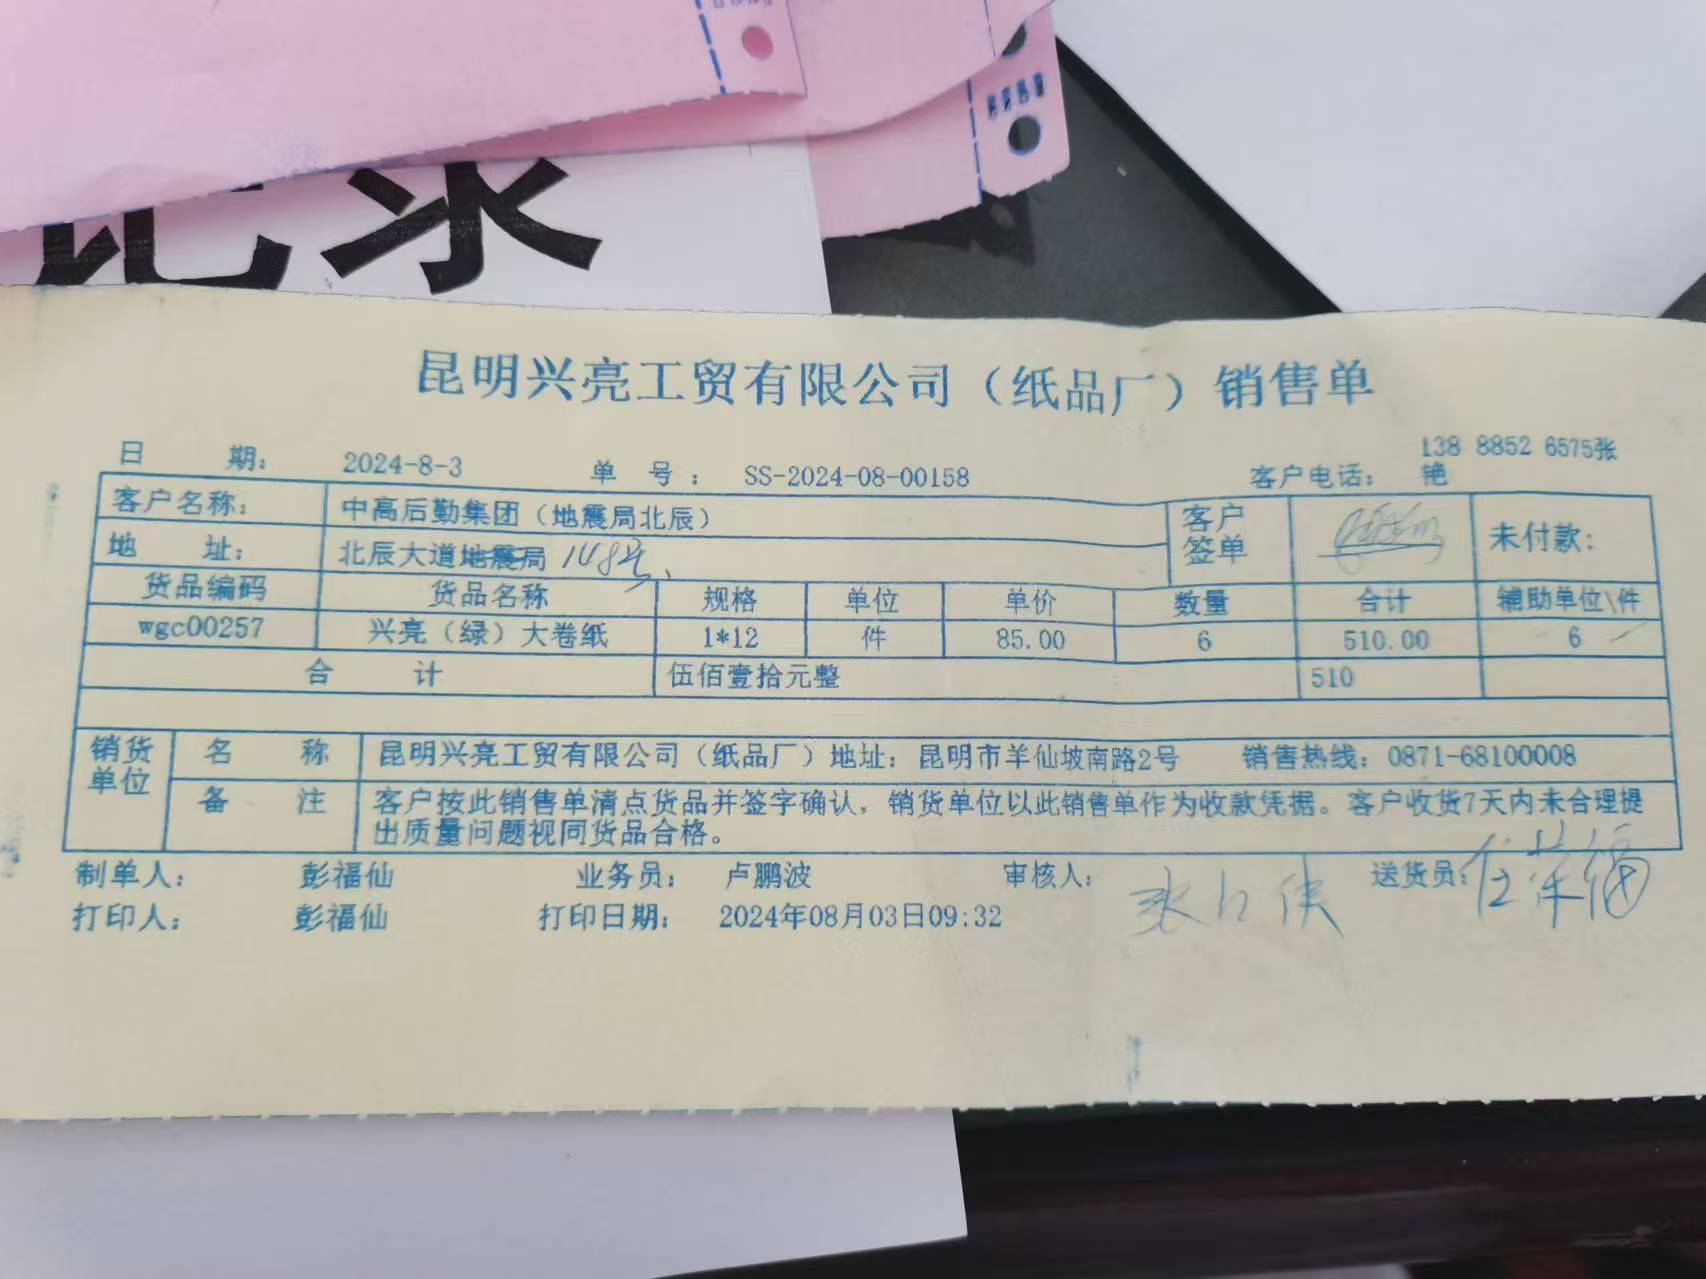 记录
昆明兴亮工贸有限公司（纸品厂）销售单
日 期： 2024-8-3 单 号： SS-2024-08-00158 客户电话： 138 8852 6575张艳
客户名称： 中高后勤集团（地震局北辰） 客户签单 未付款：
地 址： 北辰大道地震局 148号、
货品编码 货品名称 规格 单位 单价 数量 合计 辅助单位\件
wgc00257 兴亮（绿）大卷纸 1*12 件 85.00 6 510.00 6
合 计 伍佰壹拾元整 510
销货单位 名 称 昆明兴亮工贸有限公司（纸品厂）地址：昆明市羊仙坡南路2号 销售热线：0871-68100008
备 注 客户按此销售单清点货品并签字确认，销货单位以此销售单作为收款凭据。客户收货7天内未合理提
出质量问题视同货品合格。
制单人： 彭福仙 业务员： 卢鹏波 审核人： 送货员：
打印人： 彭福仙 打印日期： 2024年08月03日09:32